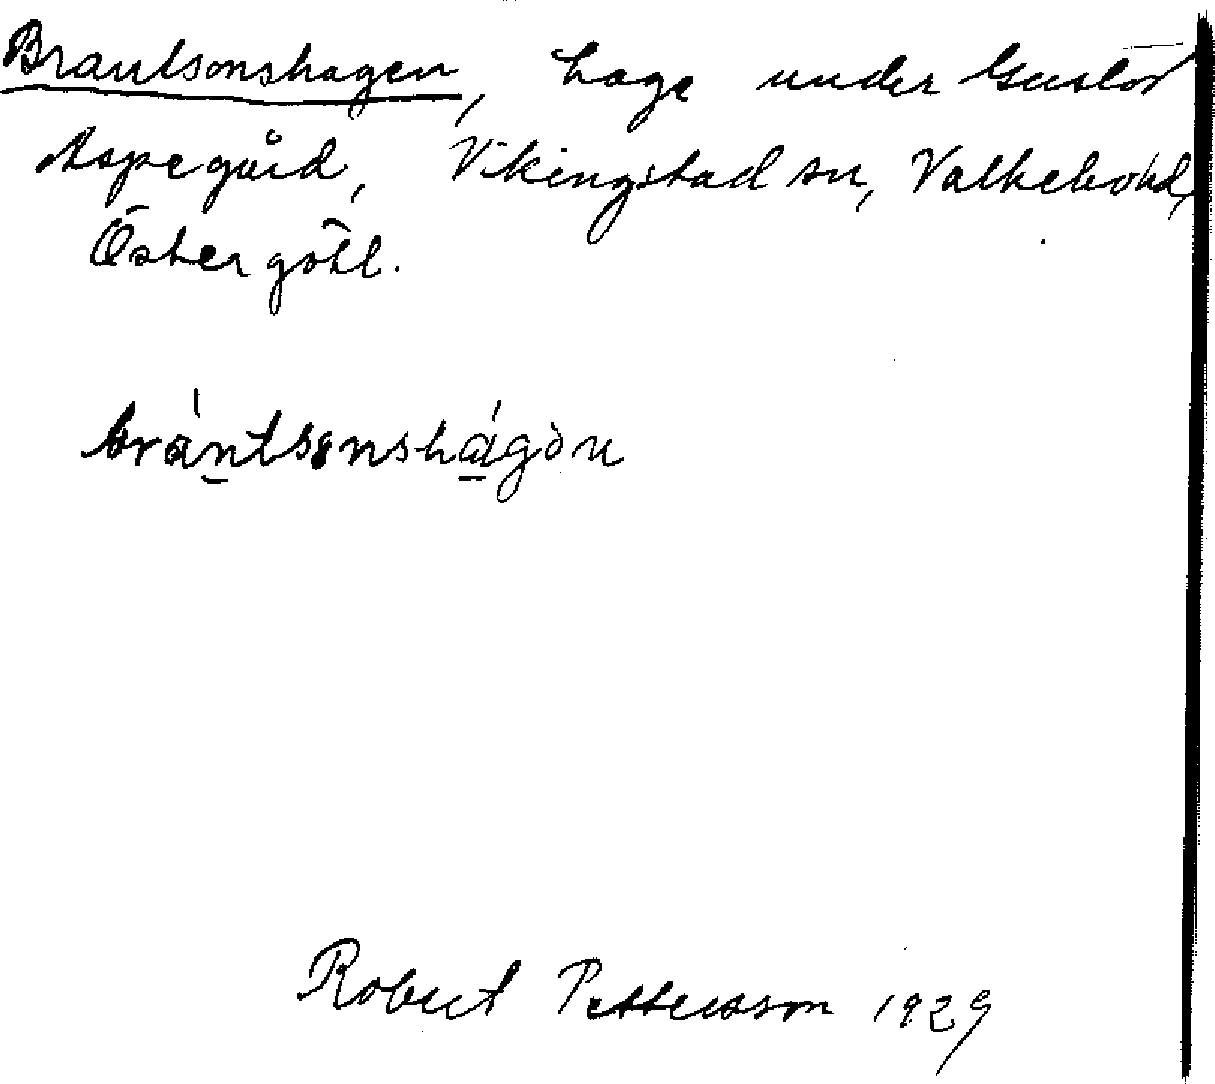 Brantsonshagen, hage under Gustav
Aspegård, Vikingstad sn, Valkebo hd,
Östergötl.
brántsonshágən
Robert Pettersson 1929